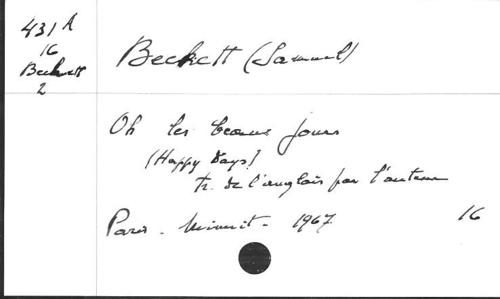 431 A
16
Beckett
2
Beckett (Samuel)
Oh les beaux jours
(Happy Days)
tr. de l'anglais par l'auteur
Paris - Minuit - 1967
16